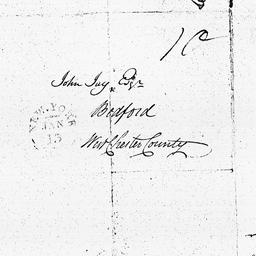 10
John Jay Esqr
Bedford
West Chester County
NEW-YORK
JAN
15